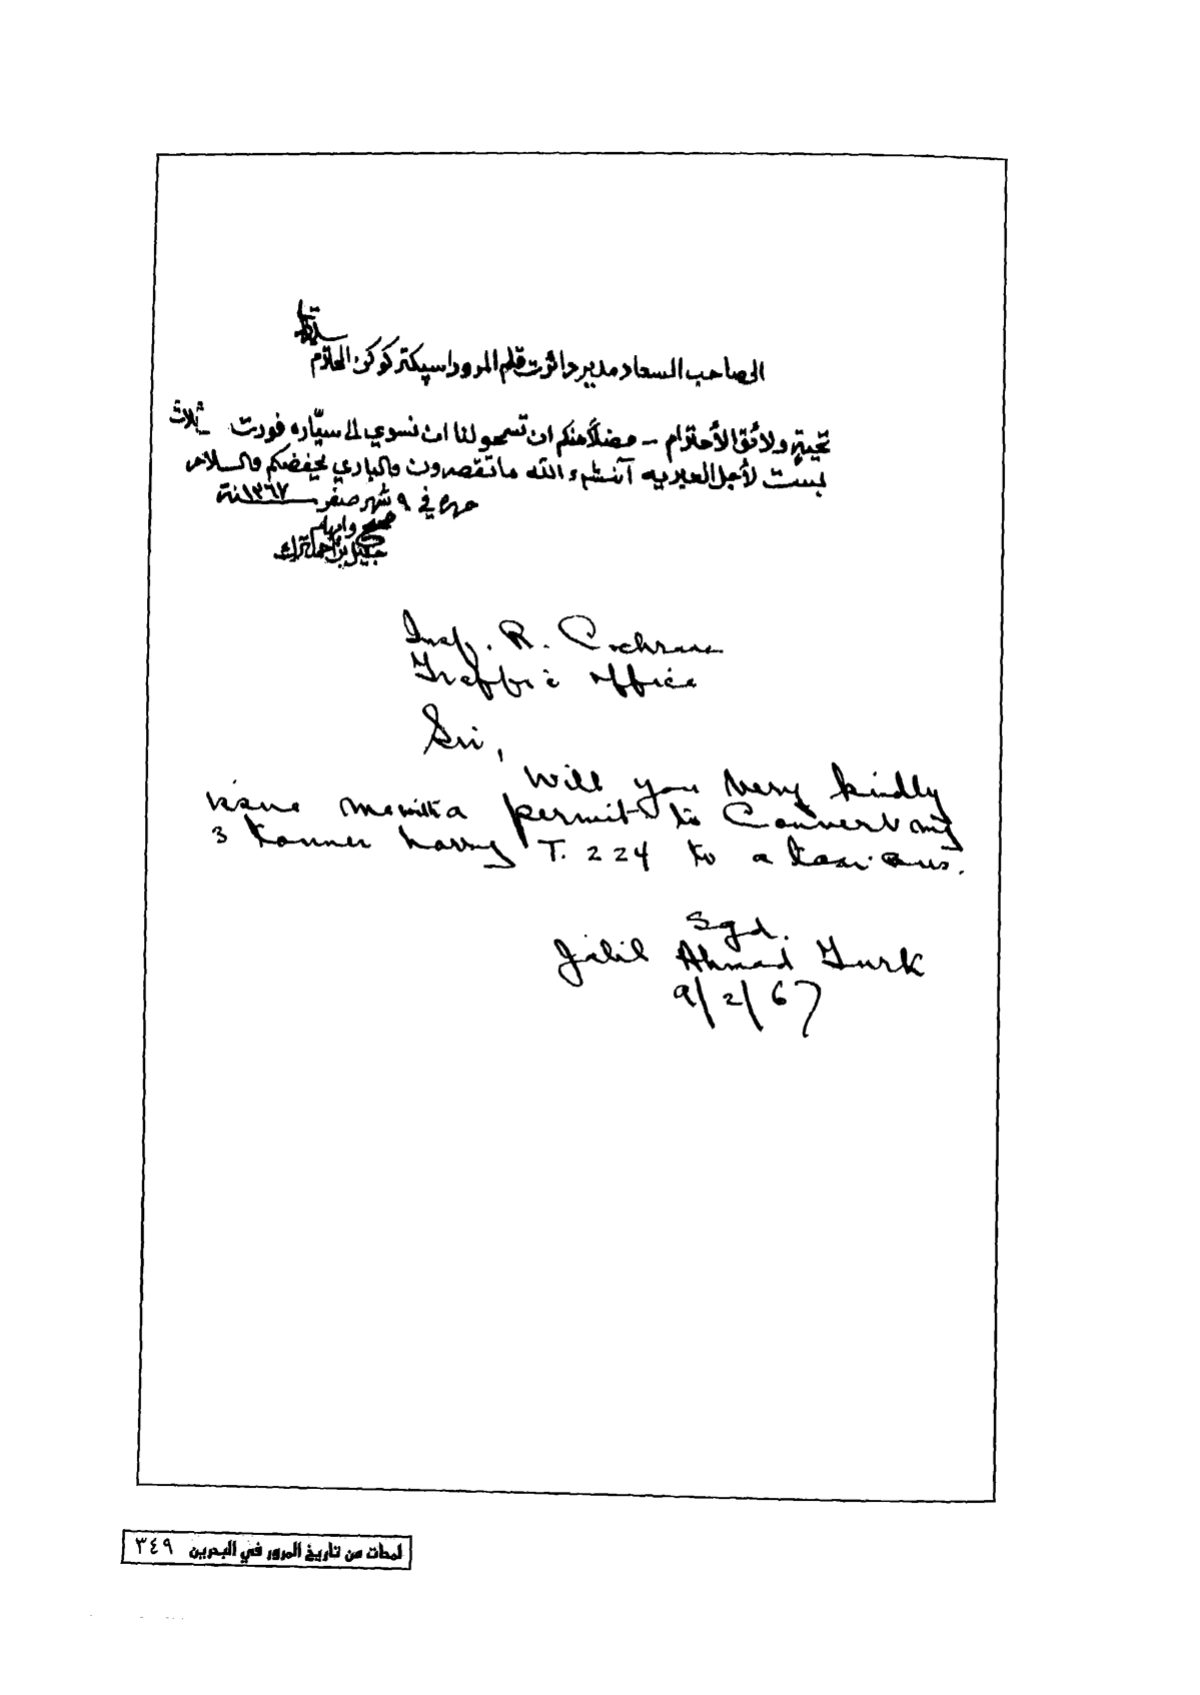 الى صاحب السعاد مدير دائرت قلم المرور اسپكتر كوكرن المحترم
تحيةٍ ولائق الأحترام - فضلاً منكم ان تسمحو لنا ان نسوي لى سيّاره فورت ثلاث
لأجل العبريه آنشاء الله ما تقصرون والباري يحفضكم والسلام
حرره في ٩ شهر صفر سنة ١٣٦٧
صحيح وابهام
جليل بن أحمد ترك
Insp. R. Cochrane
Traffic office
Sir,
Will you very kindly
issue me with a permit to Convert my
3 tonner lorry T. 224 to a taxi bus.
Sgd.
Jalil Ahmad Turk
9/2/67
لمحات من تاريخ المرور في البحرين ٣٤٩